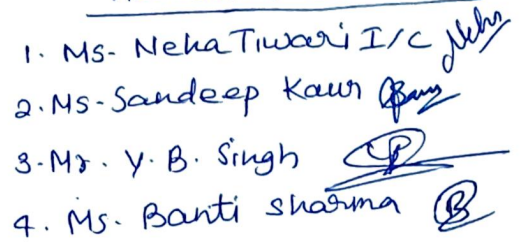 1. Ms- Neha Tiwari I/C Neha
2. Ms- Sandeep Kaur
3- Mr. Y. B. Singh
4. Ms. Banti Sharma B